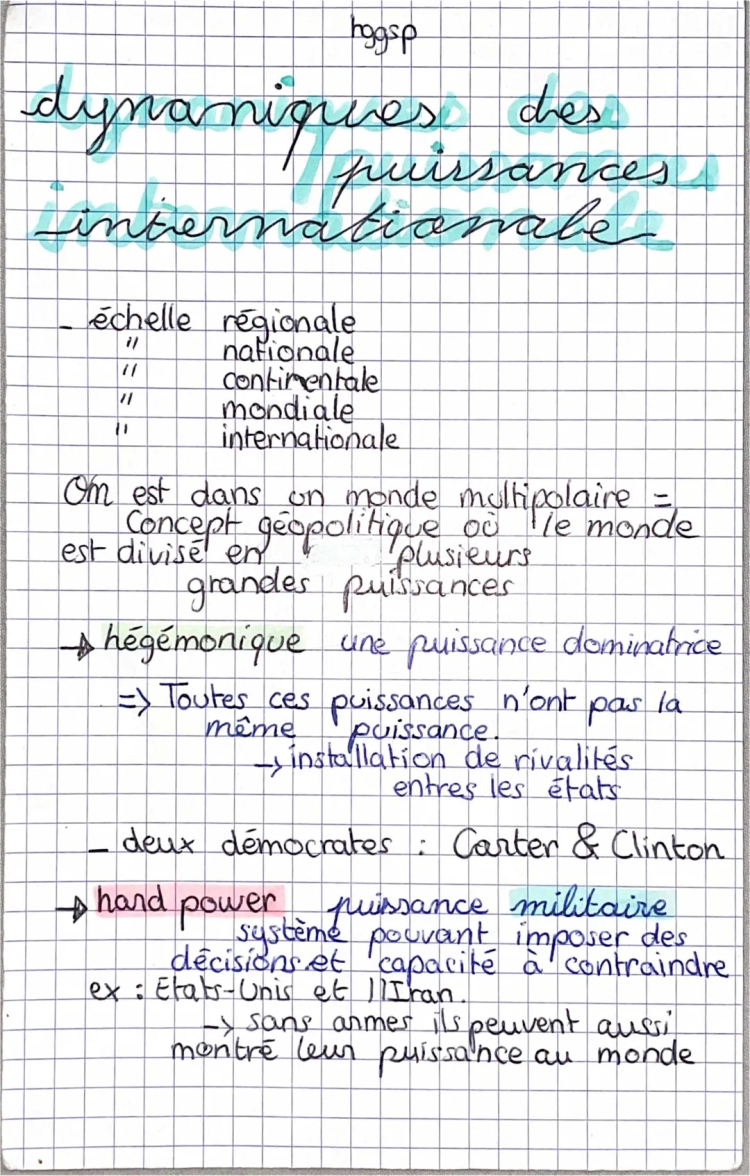 hggsp
dynamiques des
puissances
internationale
- échelle régionale
" nationale
" continentale
" mondiale
" internationale
On est dans un monde multipolaire =
Concept géopolitique où le monde
est divisé en plusieurs
grandes puissances
→ hégémonique une puissance dominatrice
=> Toutes ces puissances n'ont pas la
même puissance.
→ installation de rivalités
entres les états
- deux démocrates : Carter & Clinton
→ hard power puissance militaire
système pouvant imposer des
décisions et capacité à contraindre
ex : États-Unis et l'Iran.
→ sans armes ils peuvent aussi
montré leur puissance au monde